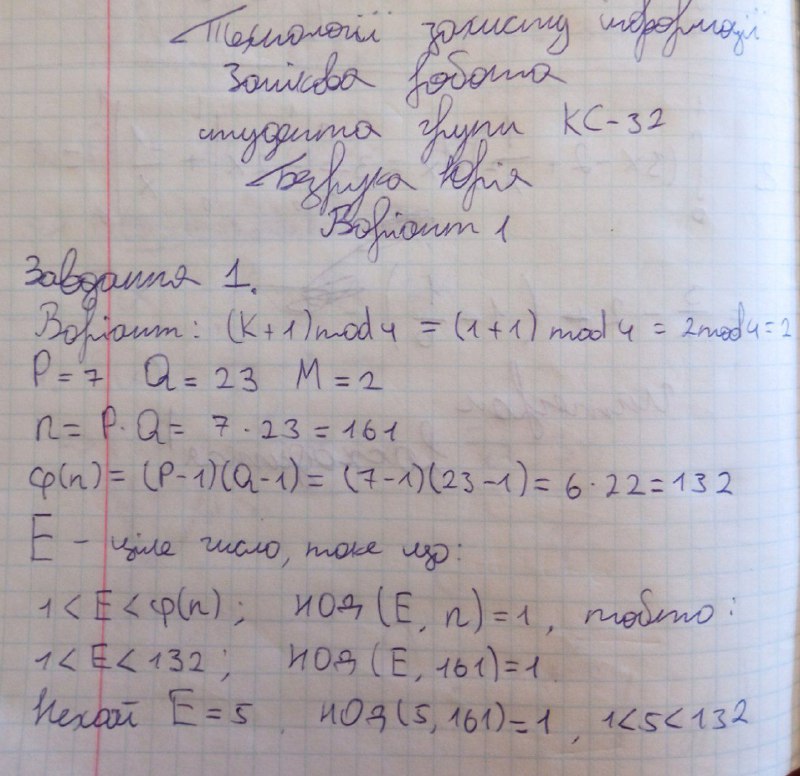 Технології захисту інформації
Залікова робота
студента групи КС-32
Безрука Юрія
Варіант 1
Завдання 1.
Варіант: (K+1)mod4 = (1+1) mod 4 = 2mod4=2
P=7 Q=23 M=2
n= P·Q= 7·23=161
φ(n)= (P-1)(Q-1)= (7-1)(23-1)= 6·22=132
E - ціле число, таке що:
1<E<φ(n); НОД(E, n)=1, тобто:
1<E<132; НОД(E, 161)=1
Нехай E=5. НОД(5, 161)=1, 1<5<132